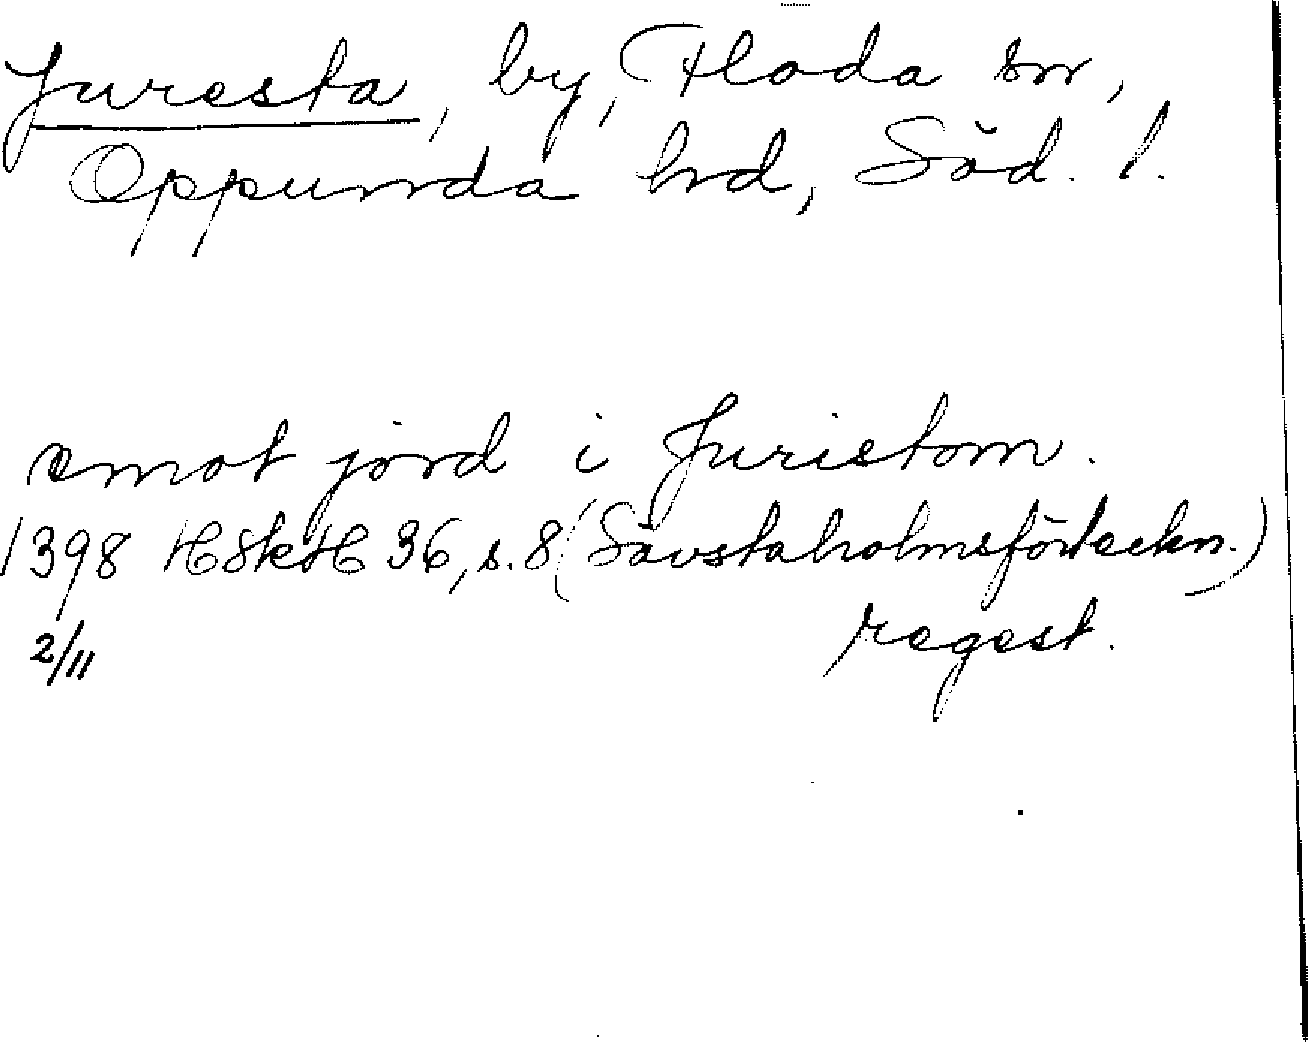 Juresta, by, Floda sn,
Oppunda hd, Söd. l.
emot jord i Juristom.
1398 HSkH 36, s. 8 (Sävstaholmsförteckn.)
regest.
2/11